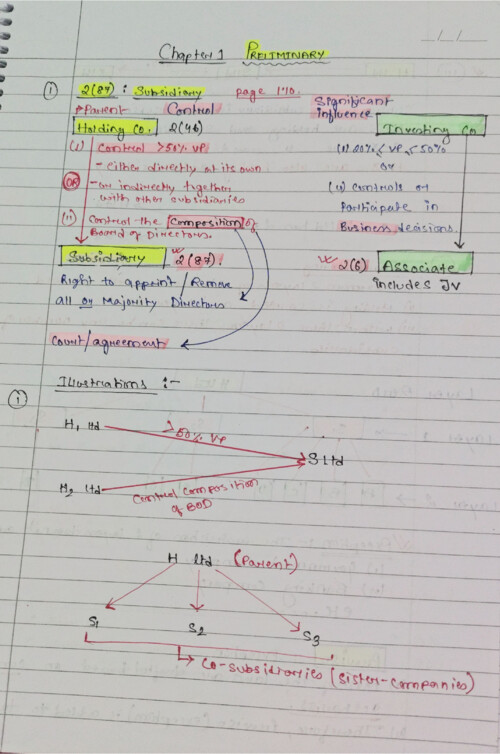 Chapter 1 PRELIMINARY
① 2(87) : Subsidiary page 1.10.
Parent Control Significant influence
Holding Co. 2(46) Investing Co
(i) Control >50% VP
- Either directly at its own
OR - or indirectly together
with other subsidiaries
(ii) Control the Composition of
Board of Directors.
(i) 20% ≤ VP ≤ 50%
or
(ii) Controls or
Participate in
Business decisions.
Subsidiary 2(87) 2(6) Associate
includes JV
Right to appoint / Remove
all or Majority Directors
Court/agreement
Illustrations :-
①
H1 ltd
>50% VP
S Ltd
H2 Ltd
Control Composition
of BOD
H ltd (Parent)
S1 S2 S3
Co-subsidiaries (Sister-companies)